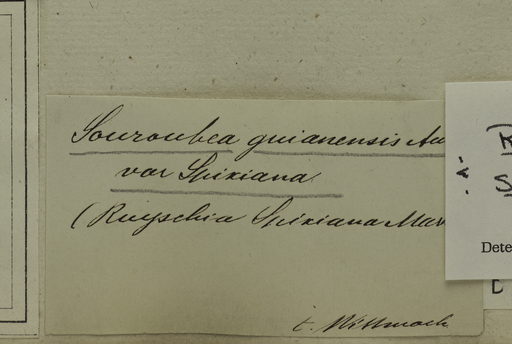 Souroubea guianensis Au
var Spixiana
(Ruyschia Spixiana Mar
t. Wittmack
Dete